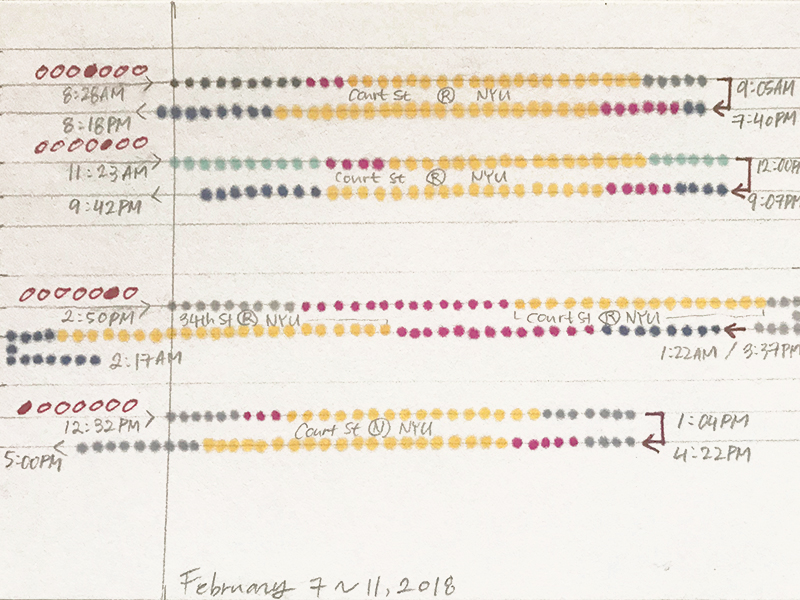 8:28AM
9:05AM
Court St Ⓡ NYU
8:18PM
7:40PM
11:23AM
12:00PM
Court St Ⓡ NYU
9:42PM
9:07PM
2:50PM
34th St Ⓡ NYU
Court St Ⓡ NYU
1:22AM / 3:37PM
2:17AM
12:32PM
1:04PM
Court St Ⓝ NYU
5:00PM
4:22PM
February 7~11, 2018